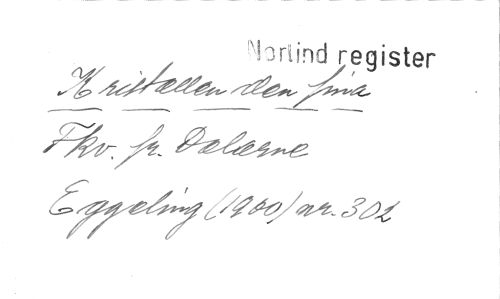 Norlind register
Kristallen den fina
Fkv. fr. Dalarne
Eggeling (1900) nr. 302